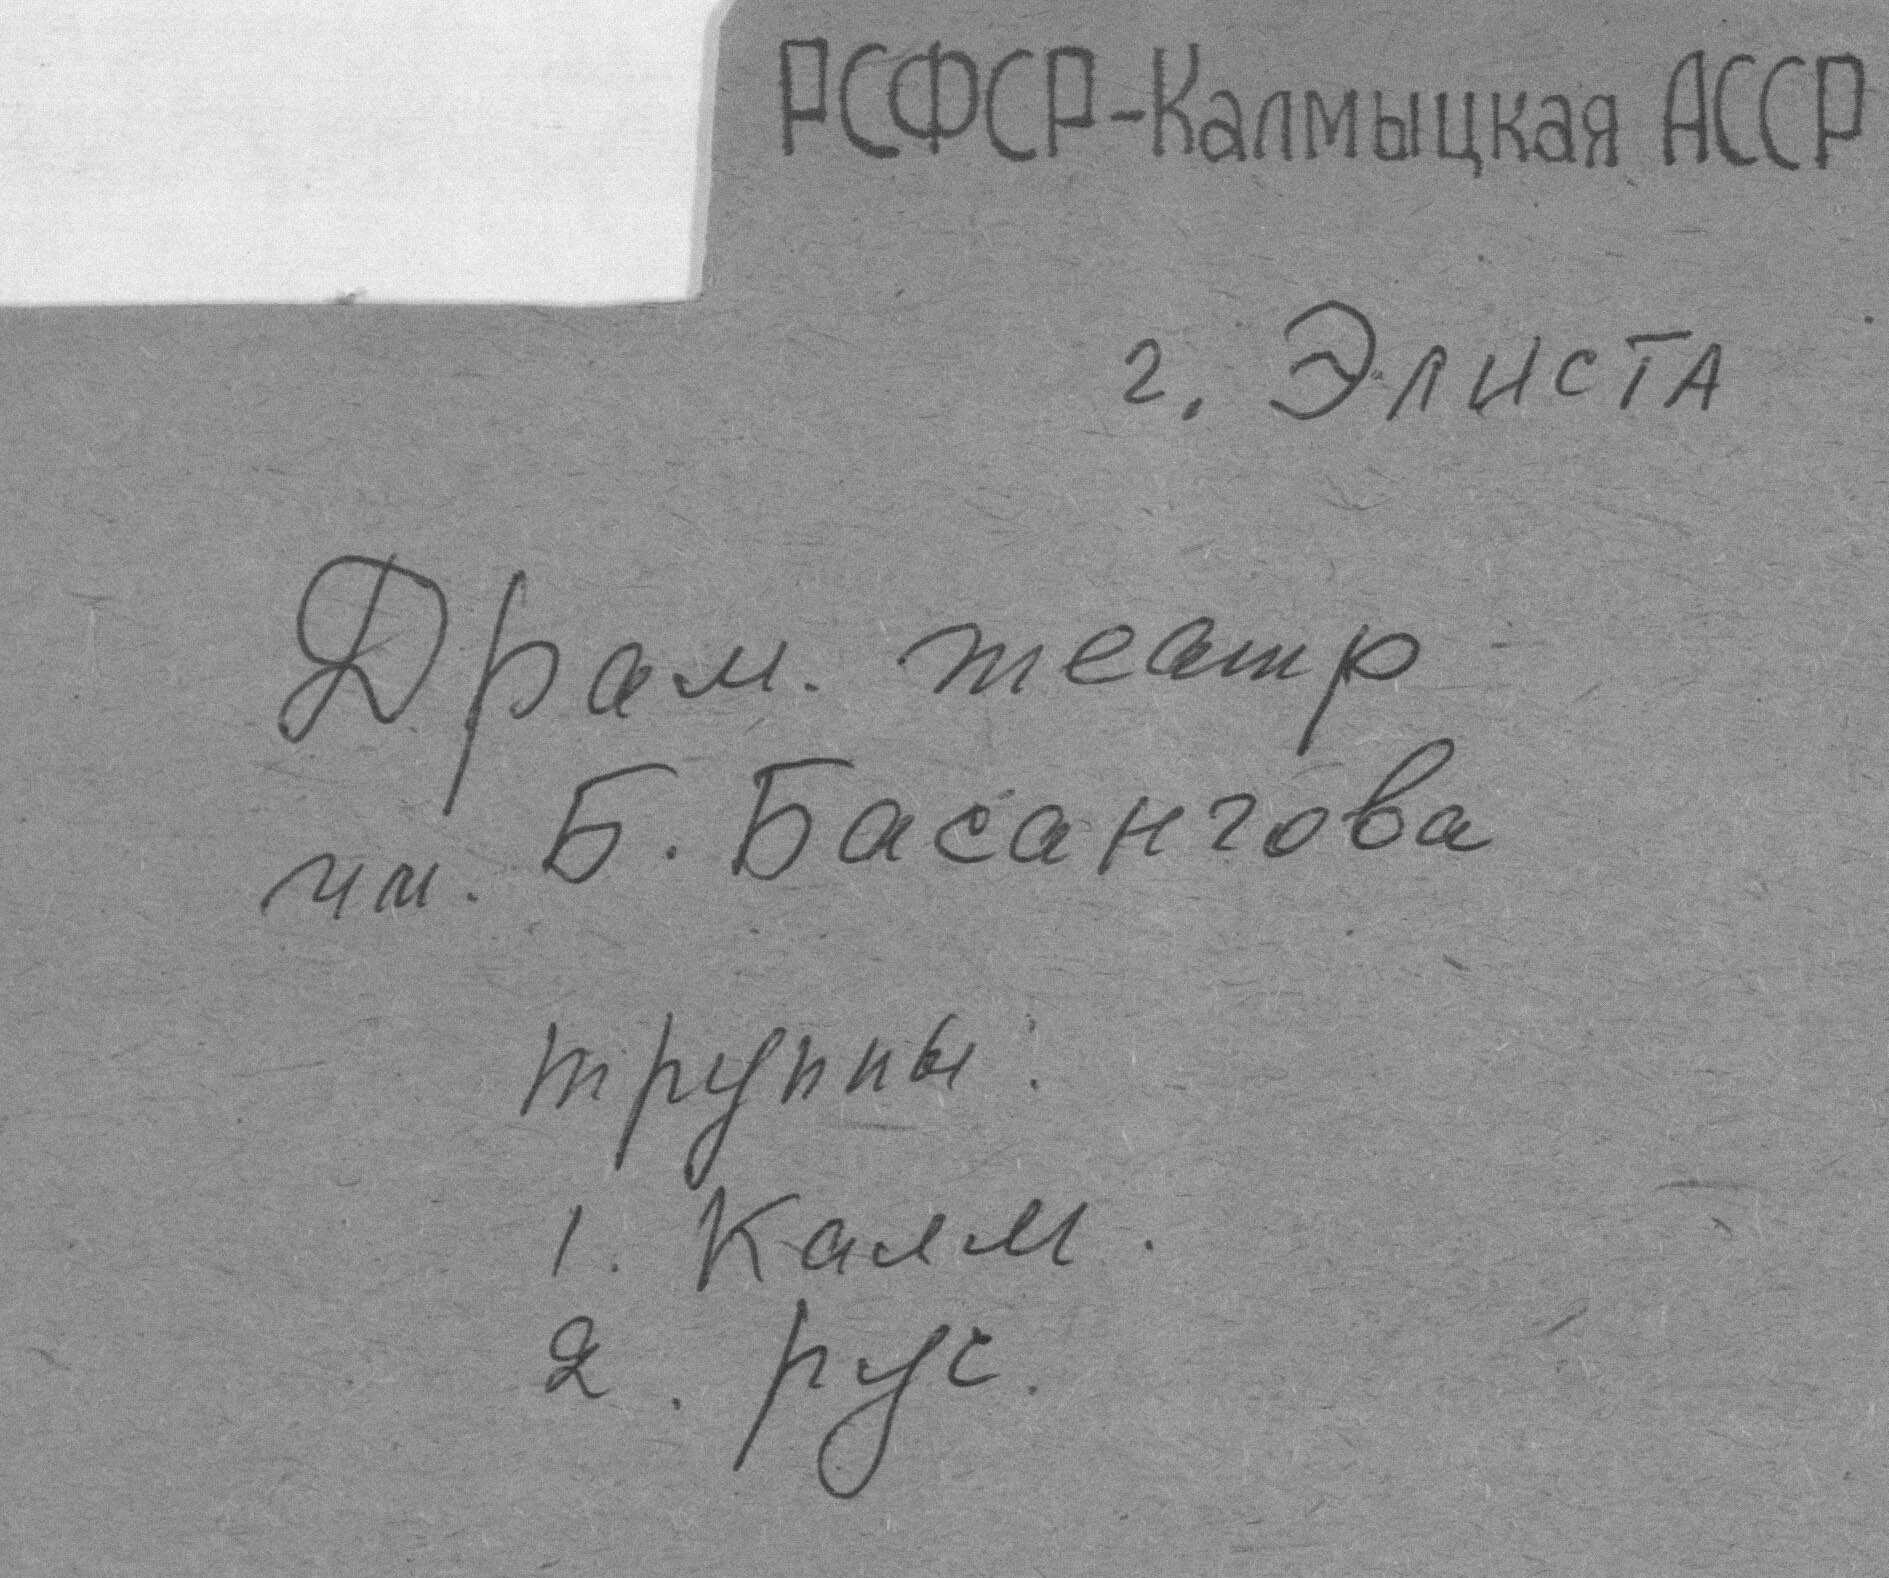 РСФСР-Калмыцкая АССР
г. Элиста
Драм. театр
им. Б. Басангова
труппы:
1. Калм.
2. рус.